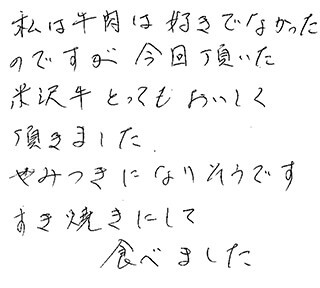 私は牛肉は好きでなかった
のですが今回頂いた
米沢牛とってもおいしく
頂きました
やみつきになりそうです
すき焼きにして
食べました